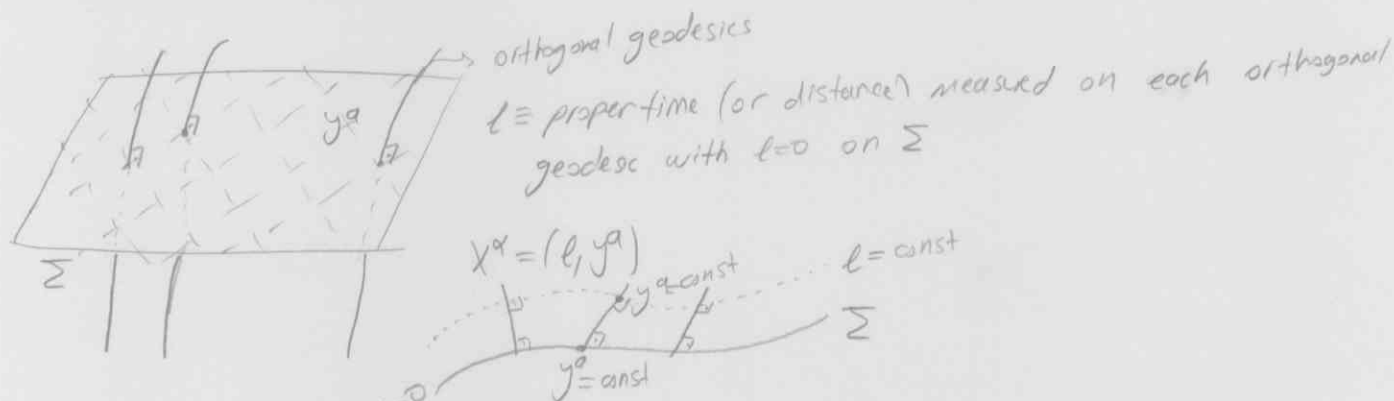 orthogonal geodesics
l ≡ proper time (or distance) measured on each orthogonal
geodesc with l=0 on Σ
yᵃ
Σ
Xᵅ = (l, yᵃ)
yᵃ=const
l = const
Σ
yᵃ=const
0